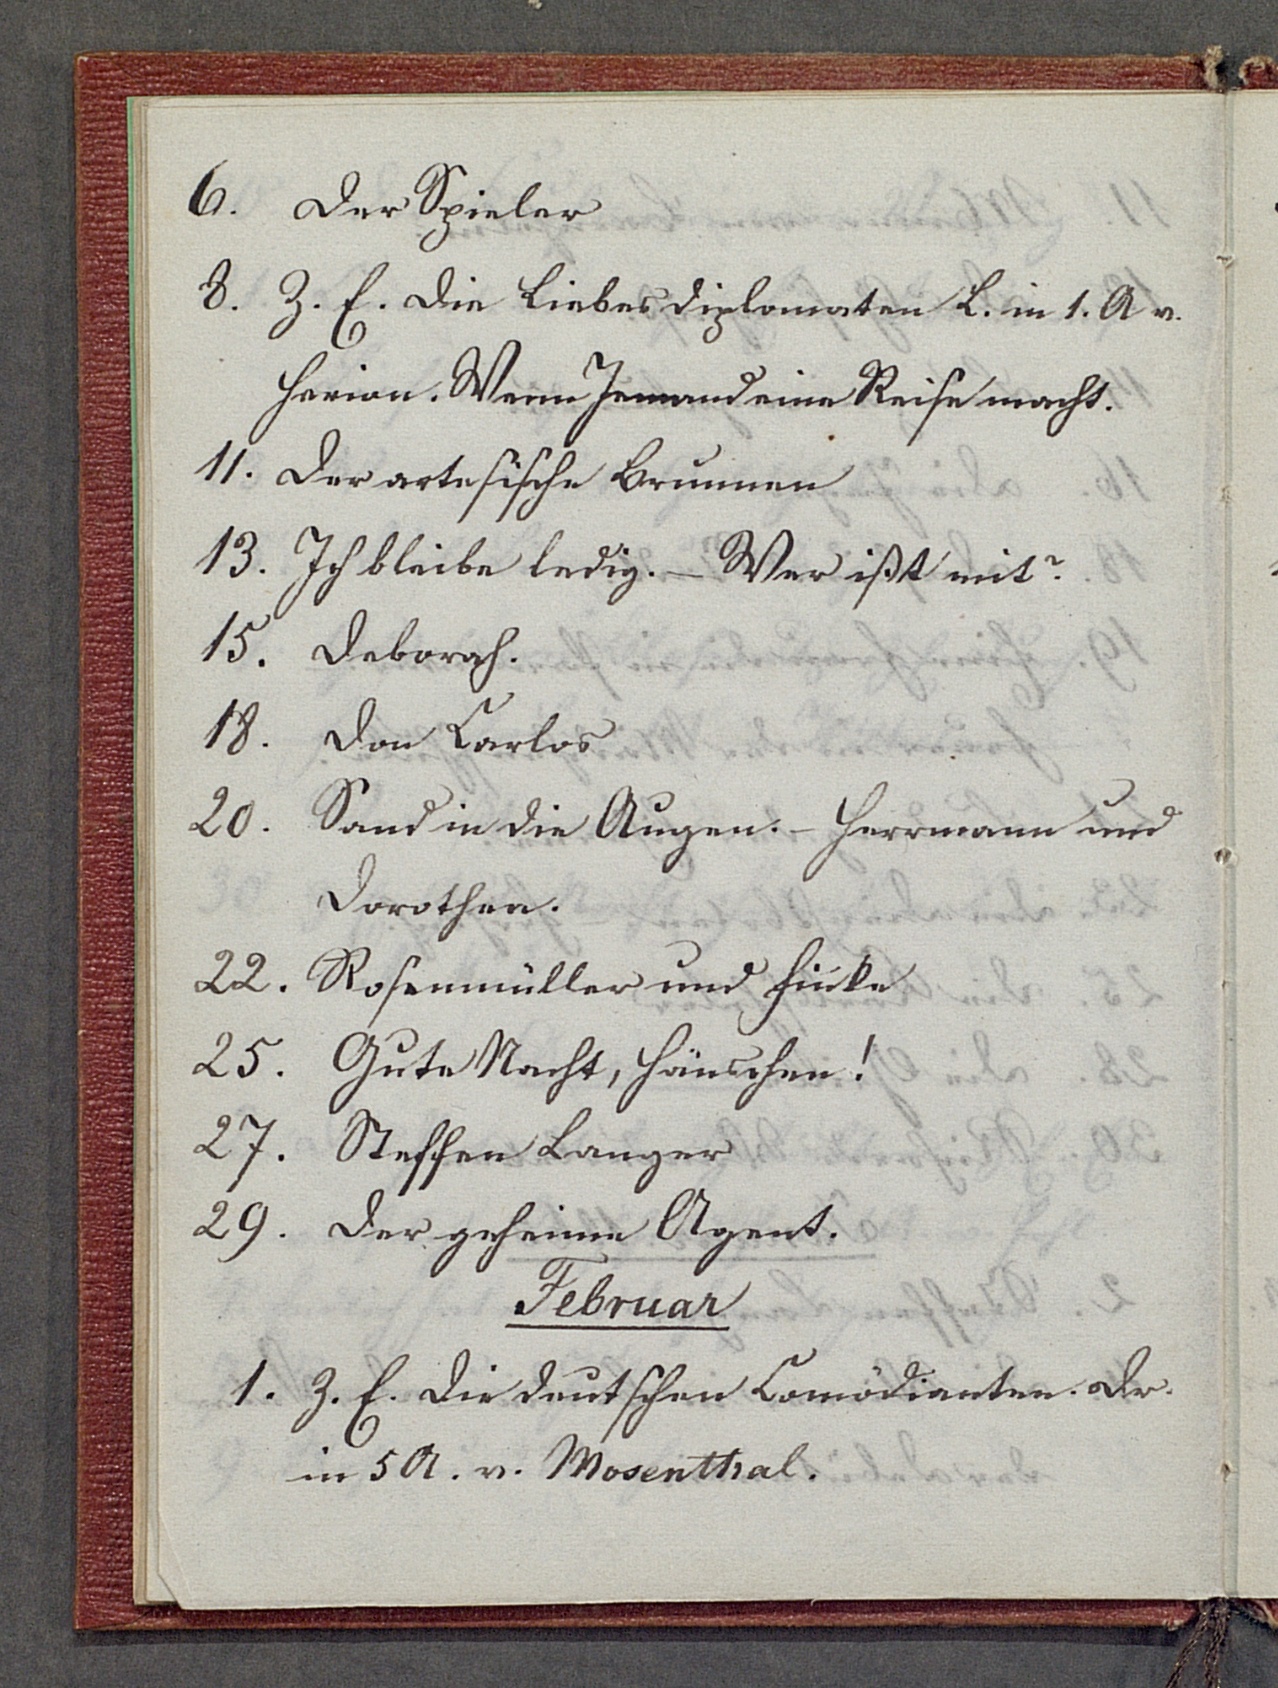 6. Der Spieler
8. Z. E. Die Liebesdiplomaten L. in 1. A v.
Herion. Wenn Jemand eine Reise macht.
11. Der artesische Brunnen
13. Ich bleibe ledig. – Wer ißt mit?
15. Deborah.
18. Don Carlos
20. Sand in die Augen. – Herrmann und
Dorothea.
22. Rosenmüller und Finke
25. Gute Nacht, Hänschen!
27. Steffen Langer
29. Der geheime Agent.
Februar
1. Z. E. Die deutschen Comödianten. Dr.
in 5 A. v. Mosenthal.